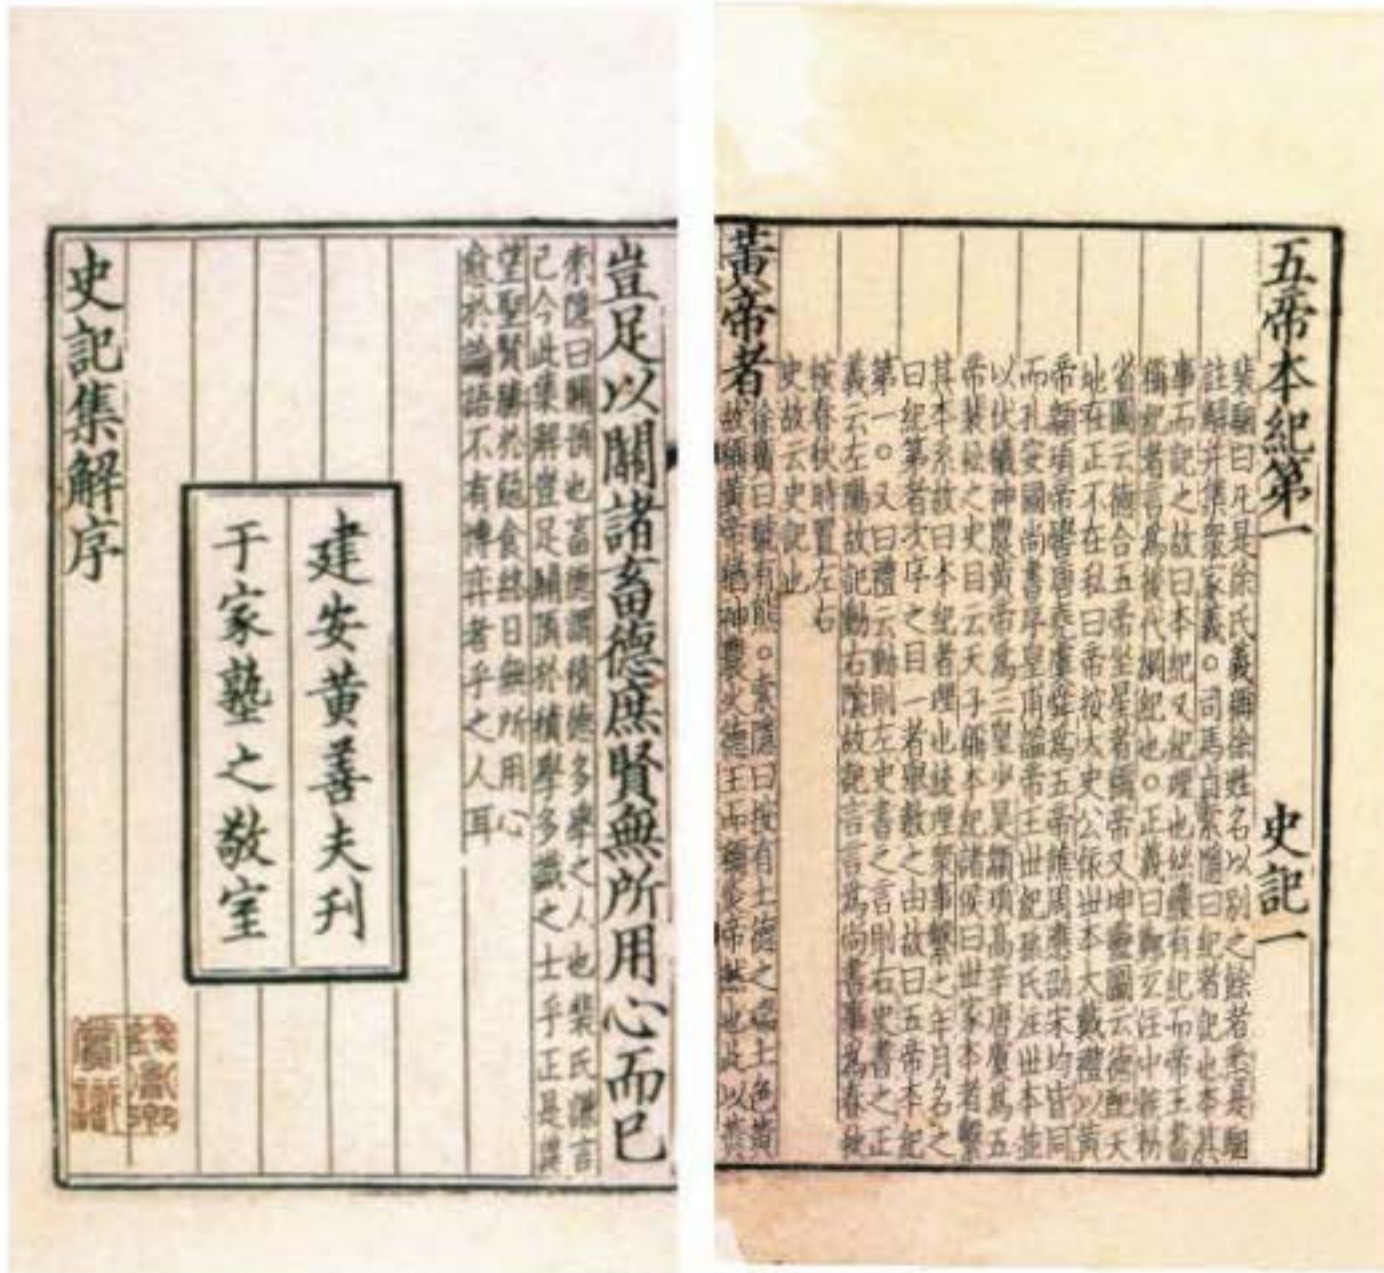 五帝本紀第一　史記一
裴駰曰凡是徐氏義稱徐姓名以別之餘者悉是駰
註解并集衆家義。司馬貞索隱曰紀者記也本其
事而記之故曰本紀又紀理也絲縷有紀而帝王書
稱紀者言爲後代綱紀也。正義曰鄭玄注中候勑
省圖云德合五帝坐星者稱帝又坤靈圖云德配天
地在正不在私曰帝按太史公依世本大戴禮以黃
帝顓頊帝嚳唐堯虞舜爲五帝譙周應劭宋均皆同
而孔安國尚書序皇甫謐帝王世紀孫氏注世本並
以伏犧神農黃帝爲三皇少昊顓頊高辛唐虞爲五
帝裴松之史目云天子稱本紀諸侯曰世家本者繫
其本系故曰本紀者理也統理衆事繫之年月名之
曰紀第者次序之目一者舉數之由故曰五帝本紀
第一。又曰禮云動則左史書之言則右史書之正
義云左陽故記動右陰故記言言爲尚書事爲春秋
按春秋時置左右
史故云史記也
黃帝者
徐廣曰號有熊。索隱曰按有土德之瑞土色黃
故稱黃帝猶神農火德王而稱炎帝然也此以黃
豈足以關諸畜德庶賢無所用心而已
索隱曰關預也畜德謂積德多學之人也裴氏謙言
己今此集解豈足關預於積學多識之士乎正是冀
望聖賢勝於飽食終日無所用心
愈於論語不有博弈者乎之人耳
建安黃善夫刊
于家塾之敬室
史記集解序